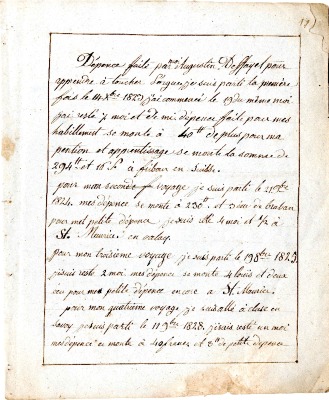 Dépence faits par Augustin Deffayet pour
apprendre à toucher l'orgue, je suis parti la première
fois le 14 Xbre 1823 j'ai commencé le 19 du même moi
j'ai resté 7 moi et ½ mi dépence faite pour mes
habillement se monte à 40 ₶ de plus pour ma
pention et apprentissage se monte la somme de
294 ₶ et 16 s à en Suisse.
pour mon seconde voyage je suis parti le 21
1824, mes dépence se monte à 230 ₶ et 3 écu de braban
pour mes petite dépence je suis resté 4 moi et ½ à
St. Maurice en valay.
pour mon troisième voyage je suis parti le 19 8bre 1825.
je suis resté 2 moi mes dépence se monte 4 louis et deux
ecu pour mes petite dépence encore a St. Maurice.
pour mon quatrième voyage je suis allé à cluse en
savoy je suis parti le 11 9bre 1828. je suis resté un moi
mes dépence se monte à 49 francs et 8 de petite dépence